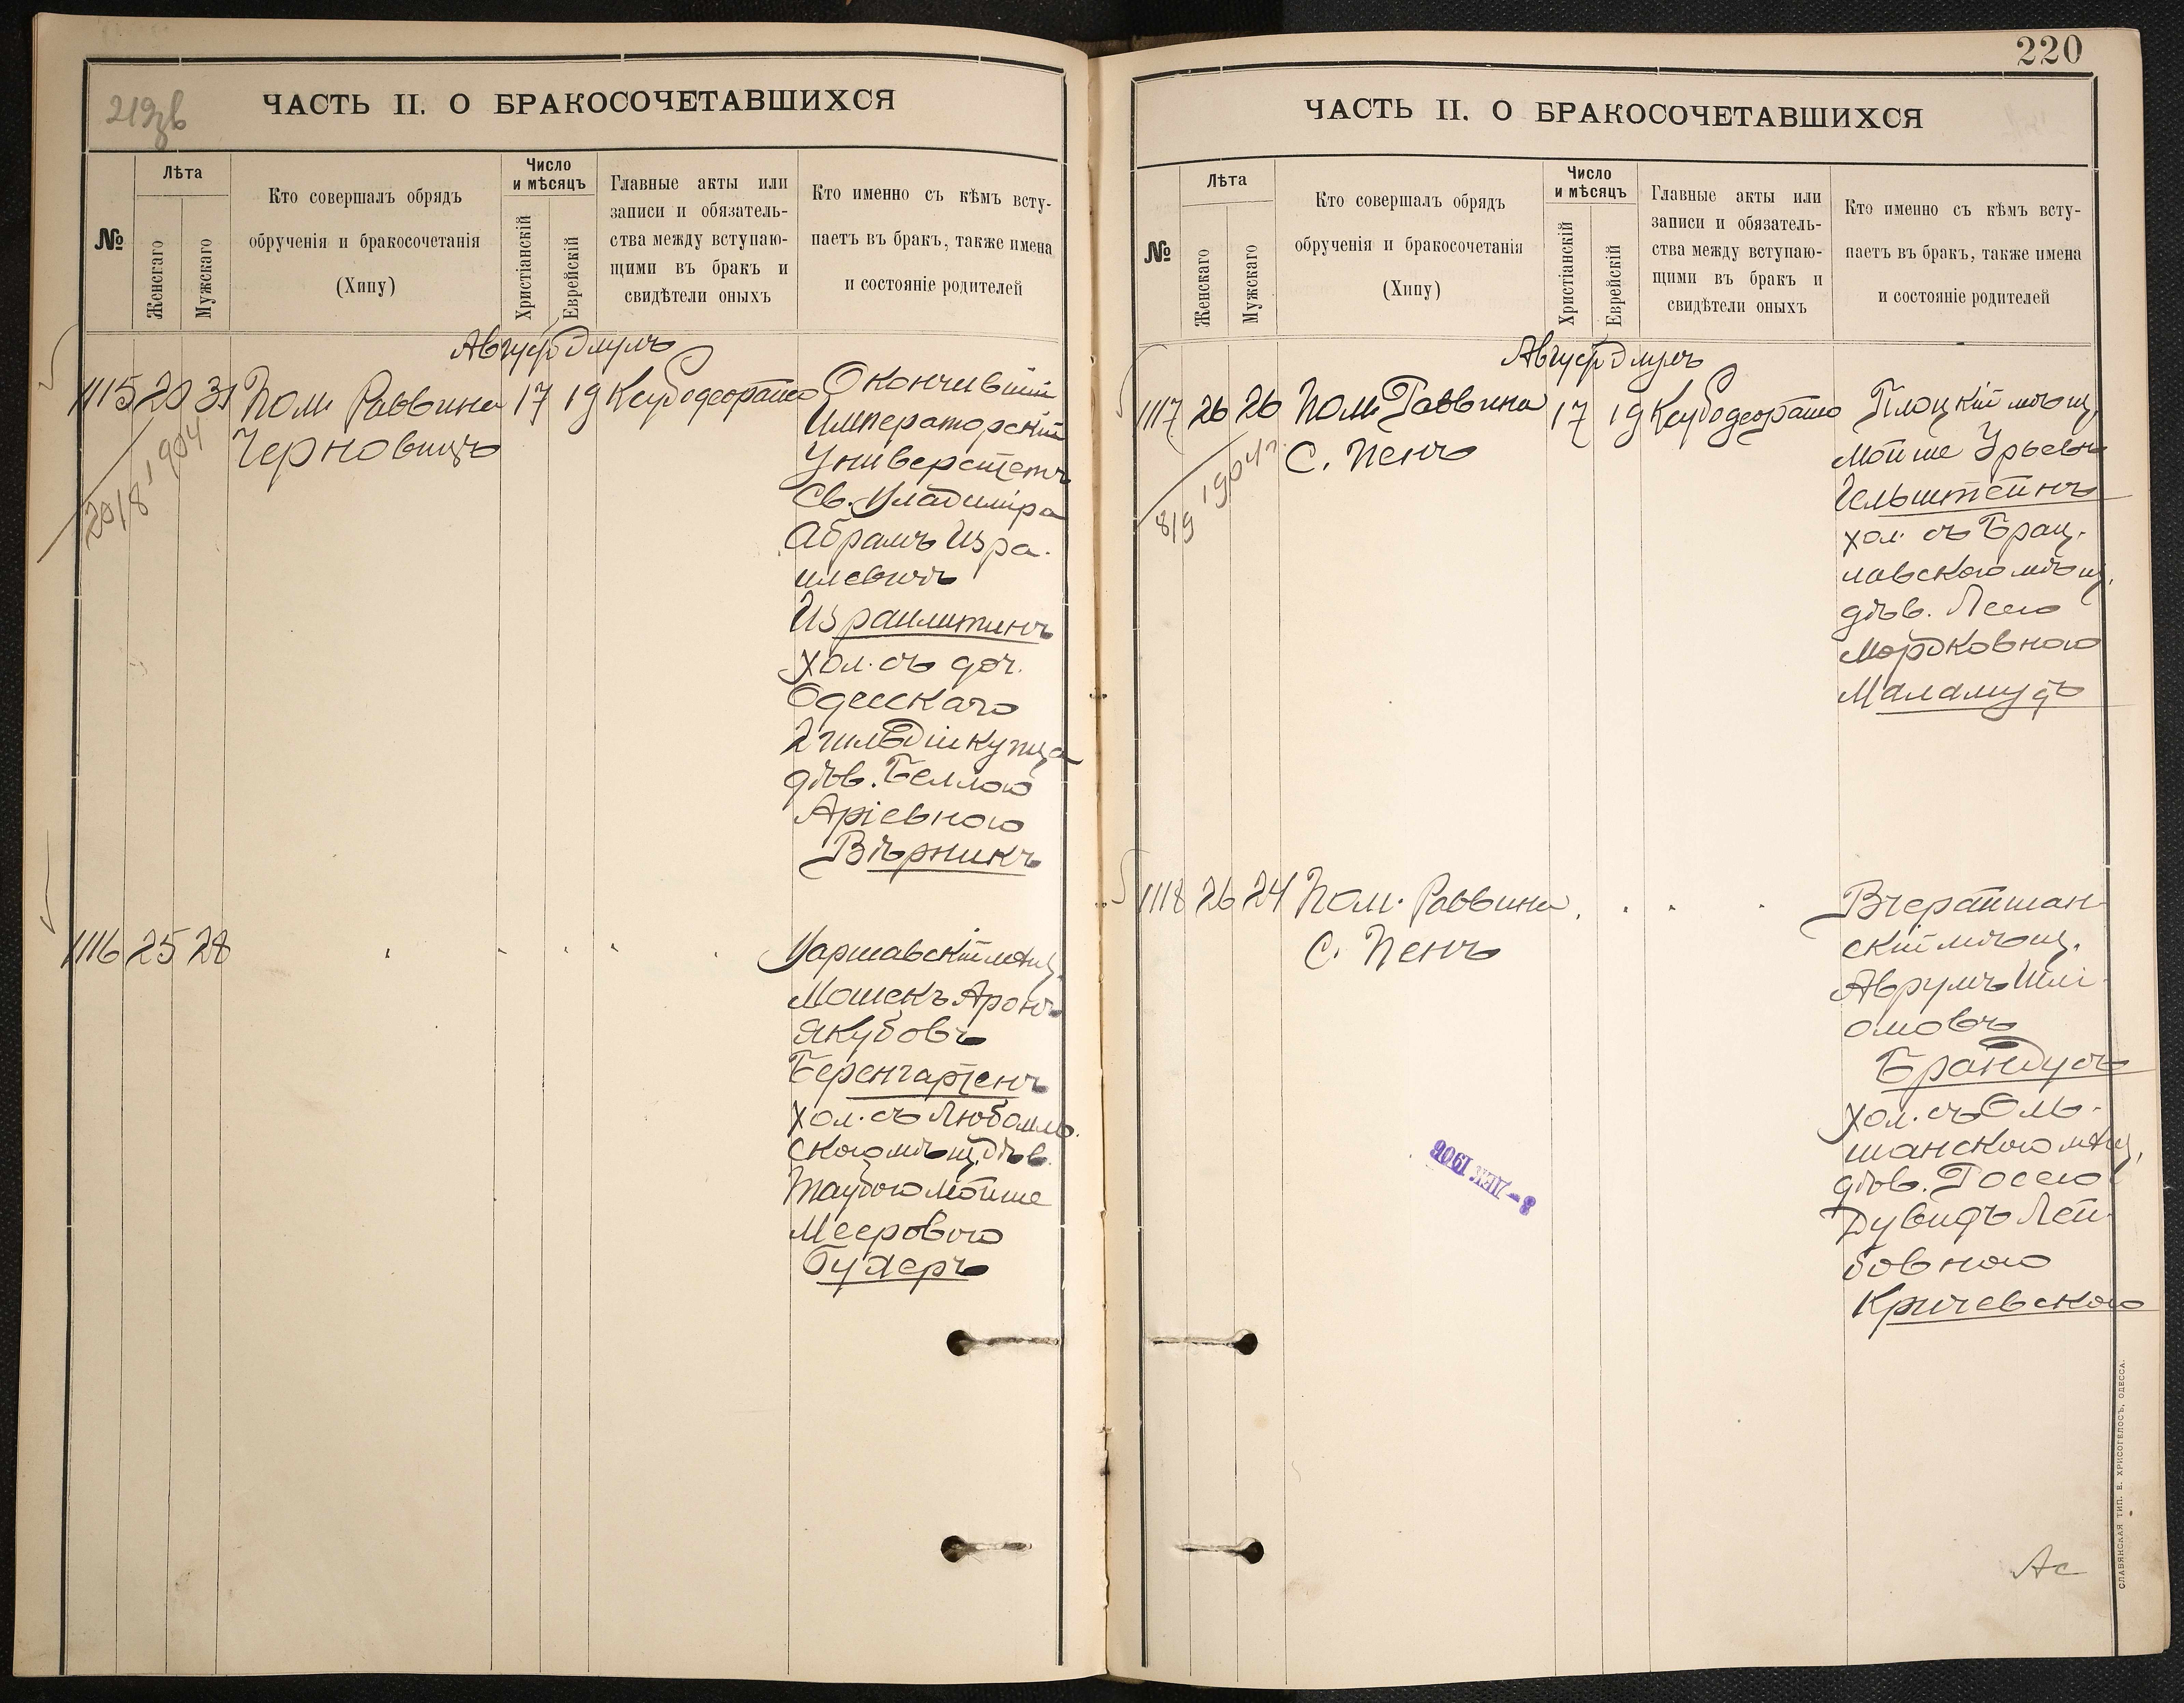 219зв
ЧАСТЬ II. О БРАКОСОЧЕТАВШИХСЯ
№
Лѣта
Женсгаго
Мужскаго
Кто совершалъ обрядъ
обрученія и бракосочетанія
(Хипу)
Число
и мѣсяцъ
Христіанскій
Еврейскій
Главные акты или
записи и обязатель-
ства между вступаю-
щими въ бракъ и
свидѣтели оныхъ
Кто именно съ кѣмъ всту-
паетъ въ бракъ, также имена
и состояніе родителей
1115 31 Пом. Раввина 17 19
Черновицъ
20/8 1904
Окончившій
Императорскій
Университетъ
Св. Владиміра
Абрамъ Изра-
илевичъ
Израилитинъ
хол. съ доч.
Одесскаго
2 гильдіи купца
дѣв. Беллою
Аріевною
Вѣрникъ
1116 25 28
Варшавскій мѣщ.
Мошекъ Аронъ
Якубовъ
Беренгартенъ
хол. съ Любомль-
скою мѣщ. дѣв.
Таубою Мойше
Мееровою
Бухеръ
220
ЧАСТЬ II. О БРАКОСОЧЕТАВШИХСЯ
№
Лѣта
Женскаго
Мужскаго
Кто совершалъ обрядъ
обрученія и бракосочетанія
(Хипу)
Число
и мѣсяцъ
Христіанскій
Еврейскій
Главные акты или
записи и обязатель-
ства между вступаю-
щими въ бракъ и
свидѣтели оныхъ
Кто именно съ кѣмъ всту-
паетъ въ бракъ, также имена
и состояніе родителей
1117 26 26 Пом. Раввина 17 19
С. Пенъ
8/9 1904 г.
Плоцкій мѣщ.
Мойше Урьевъ
Гельштейнъ
хол. съ Брац-
лавскою мѣщ.
дѣв. Леею
Мордковною
Маламудъ
1118 26 24 Пом. Раввина
С. Пенъ
Вчерайшан-
скій мѣщ.
Аврумъ Шлі-
омовъ
Брандусъ
хол. съ Оль-
шанскою мѣщ.
дѣв. Госею
Дувидъ Лей-
бовною
Кричевскою
8 - ДЕК 1906
СЛАВЯНСКАЯ ТИП. Е. ХРИСОГЕЛОСЪ, ОДЕССА.